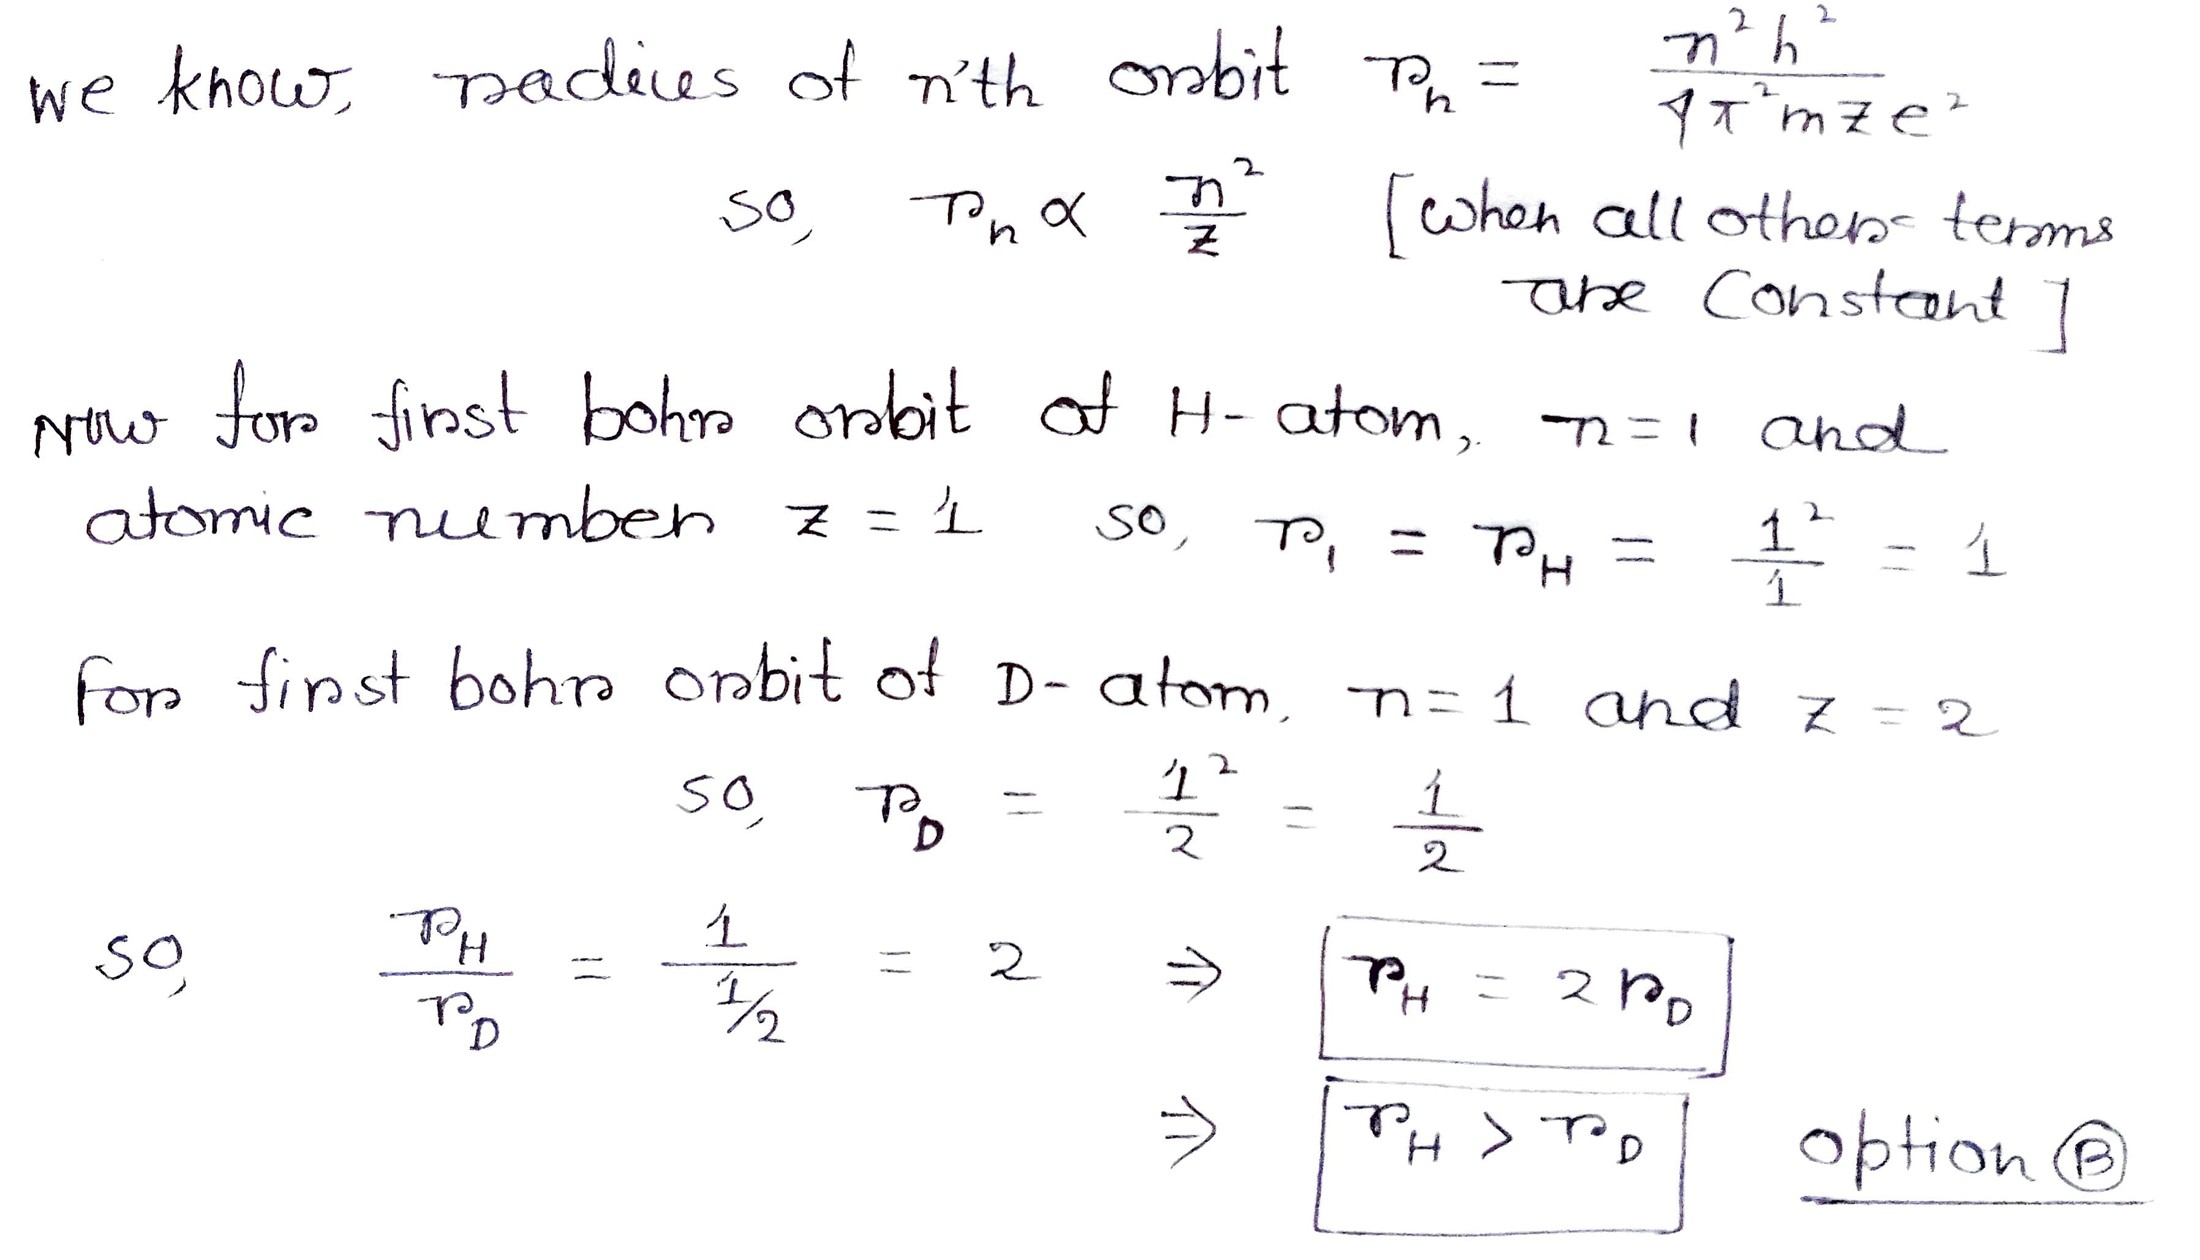 we know, radius of n'th orbit rₙ = n²h² / 4π²mze²
so, rₙ ∝ n²/z [when all other terms
are constant]
Now for first bohr orbit of H-atom, n=1 and
atomic number z = 1 so, r₁ = r_H = 1²/1 = 1
for first bohr orbit of D-atom, n=1 and z = 2
so, r_D = 1²/2 = 1/2
so, r_H/r_D = 1/(1/2) = 2 ⇒ r_H = 2 r_D
⇒ r_H > r_D option Ⓑ